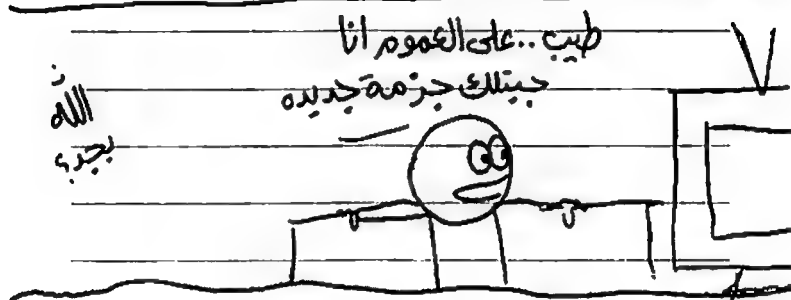 طيب .. على العموم انا
جبتلك جزمة جديده
الله
بجد؟